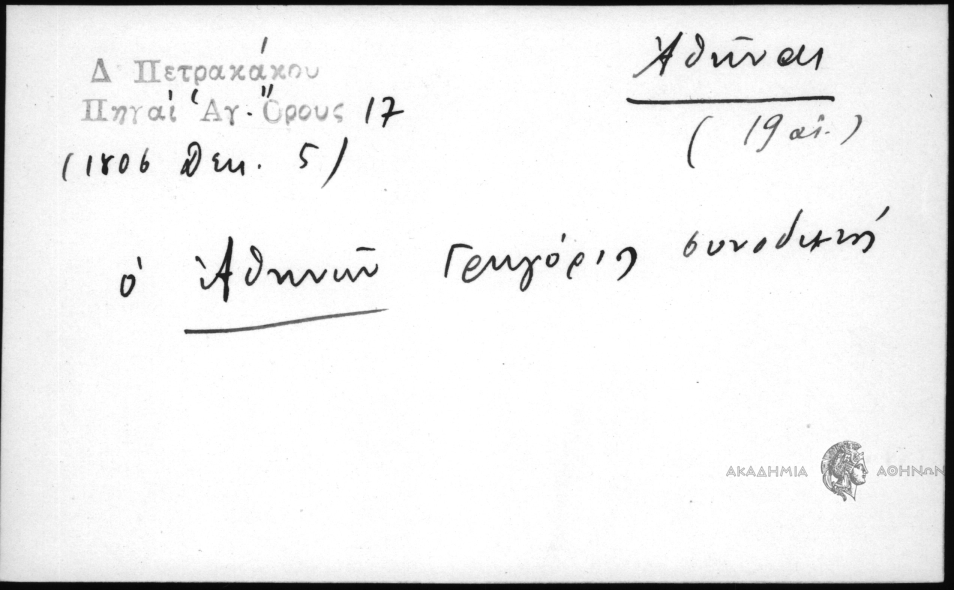 Δ Πετρακάκου
Πηγαὶ Ἁγ. Ὄρους 17
(1806 Δεκ. 5)
Ἀθῆναι
(19 αἰ.)
ὁ Ἀθηνῶν Γρηγόριος
ΑΚΑΔΗΜΙΑ ΑΘΗΝΩΝ